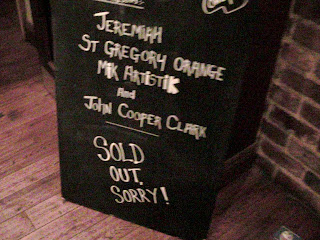 JEREMIAH
ST GREGORY ORANGE
MIK ARTISTIK
And
JOHN COOPER CLARK
SOLD
OUT.
SORRY!